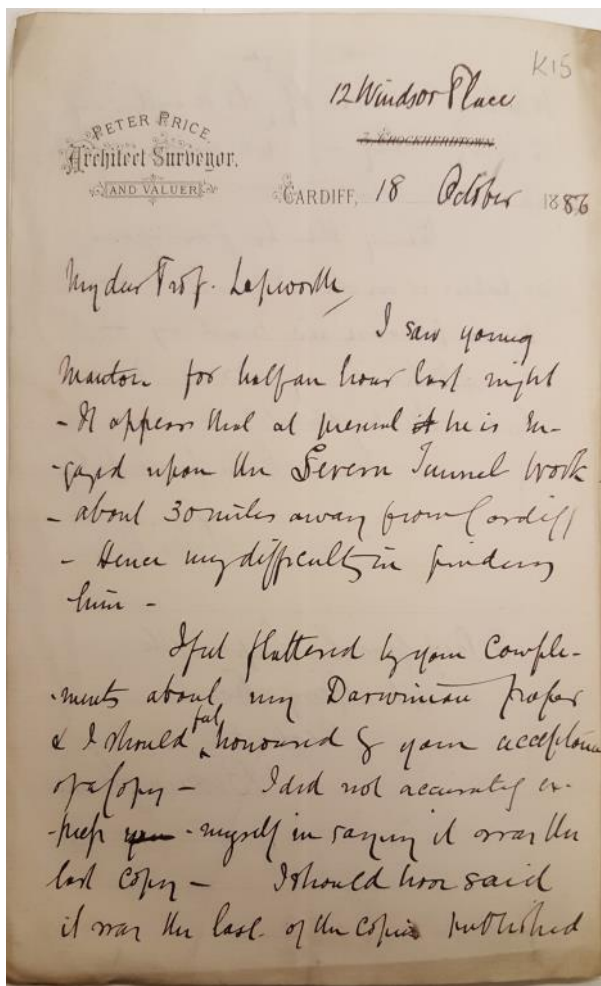 K15
12 Windsor Place
7, CROCKHERBTOWN.
PETER PRICE.
Architect Surveyor,
AND VALUER
CARDIFF, 18 October 1886
My dear Prof. Lapworth
I saw young
Manton for half an hour last night
- It appears that at present it he is en-
-gaged upon the Severn Tunnel work
- about 30 miles away from Cardiff
- Hence my difficulty in finding
him -
I feel flattered by your comple-
-ments about my Darwinian paper
& I should feel honoured by your acceptance
of a Copy - I did not accurately ex-
-press you - myself in saying it was the
last copy - I should have said
it was the last of the copies published